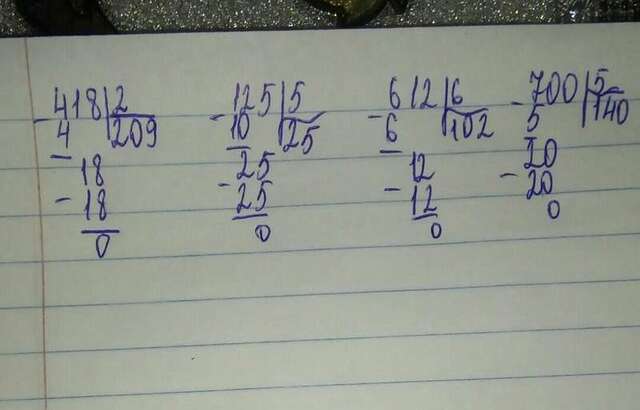 418 | 2
- 4 | 209
18
- 18
0
125 | 5
- 10 | 25
25
- 25
0
612 | 6
- 6 | 102
12
- 12
0
700 | 5
- 5 | 140
20
- 20
0